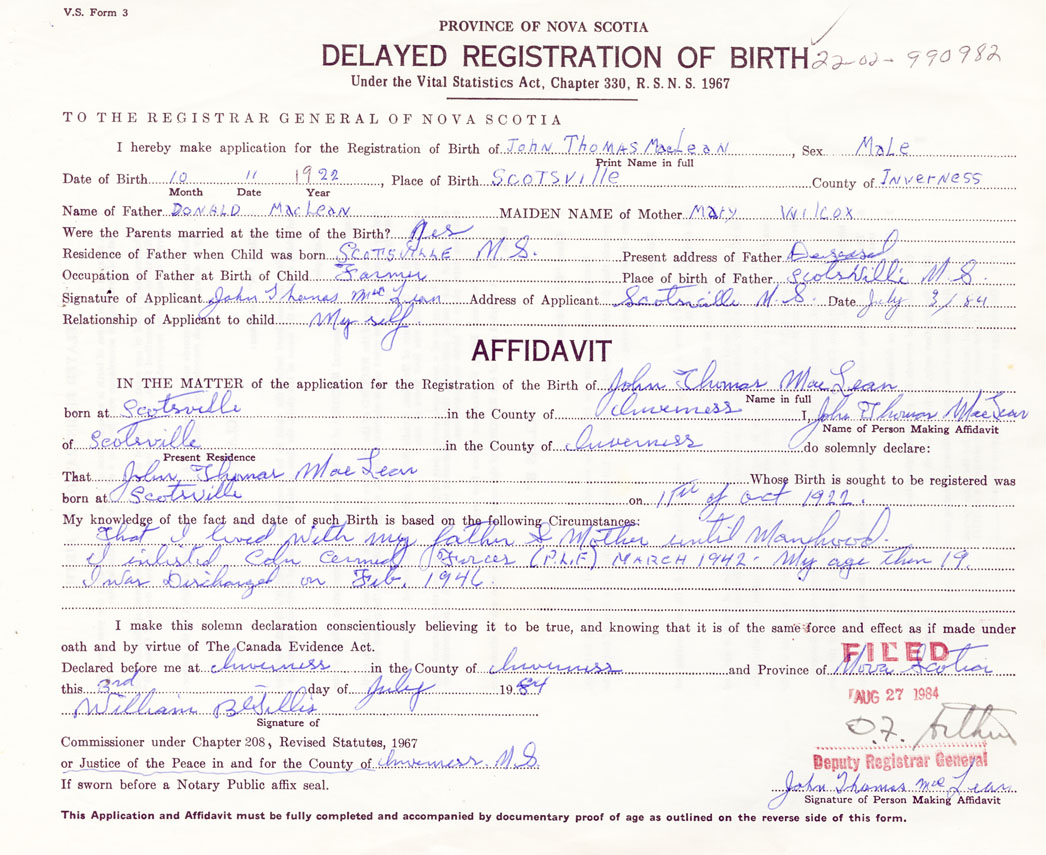 V.S. Form 3
PROVINCE OF NOVA SCOTIA
DELAYED REGISTRATION OF BIRTH 22-02-990982
Under the Vital Statistics Act, Chapter 330, R. S. N. S. 1967
TO THE REGISTRAR GENERAL OF NOVA SCOTIA
I hereby make application for the Registration of Birth of John Thomas MacLean, Sex Male
Print Name in full
Date of Birth 10 11 1922, Place of Birth Scotsville County of Inverness
Month Date Year
Name of Father Donald MacLean MAIDEN NAME of Mother Mary Wilcox
Were the Parents married at the time of the Birth? Yes
Residence of Father when Child was born Scotsville N.S. Present address of Father Deceased
Occupation of Father at Birth of Child Farmer Place of birth of Father Scotsville N.S.
Signature of Applicant John Thomas MacLean Address of Applicant Scotsville N.S. Date July 3/84
Relationship of Applicant to child My self
AFFIDAVIT
IN THE MATTER of the application for the Registration of the Birth of John Thomas MacLean
Name in full
born at Scotsville in the County of Inverness I, John Thomas MacLean
Name of Person Making Affidavit
of Scotsville in the County of Inverness do solemnly declare:
Present Residence
That John Thomas MacLean Whose Birth is sought to be registered was
born at Scotsville on 11TH of Oct 1922.
My knowledge of the fact and date of such Birth is based on the following Circumstances:
That I lived with my father & Mother until Manhood.
I inlisted Cdn Armed Forces (P.L.F) MARCH 1942. My age then 19.
I was Discharged on Feb. 1946.
I make this solemn declaration conscientiously believing it to be true, and knowing that it is of the same force and effect as if made under
oath and by virtue of The Canada Evidence Act.
FILED
Declared before me at Inverness in the County of Inverness and Province of Nova Scotia
this 3rd day of July 1984
AUG 27 1984
William B Gillis
Signature of
Commissioner under Chapter 208, Revised Statutes, 1967
Deputy Registrar General
or Justice of the Peace in and for the County of Inverness N.S.
If sworn before a Notary Public affix seal.
John Thomas MacLean
Signature of Person Making Affidavit
This Application and Affidavit must be fully completed and accompanied by documentary proof of age as outlined on the reverse side of this form.